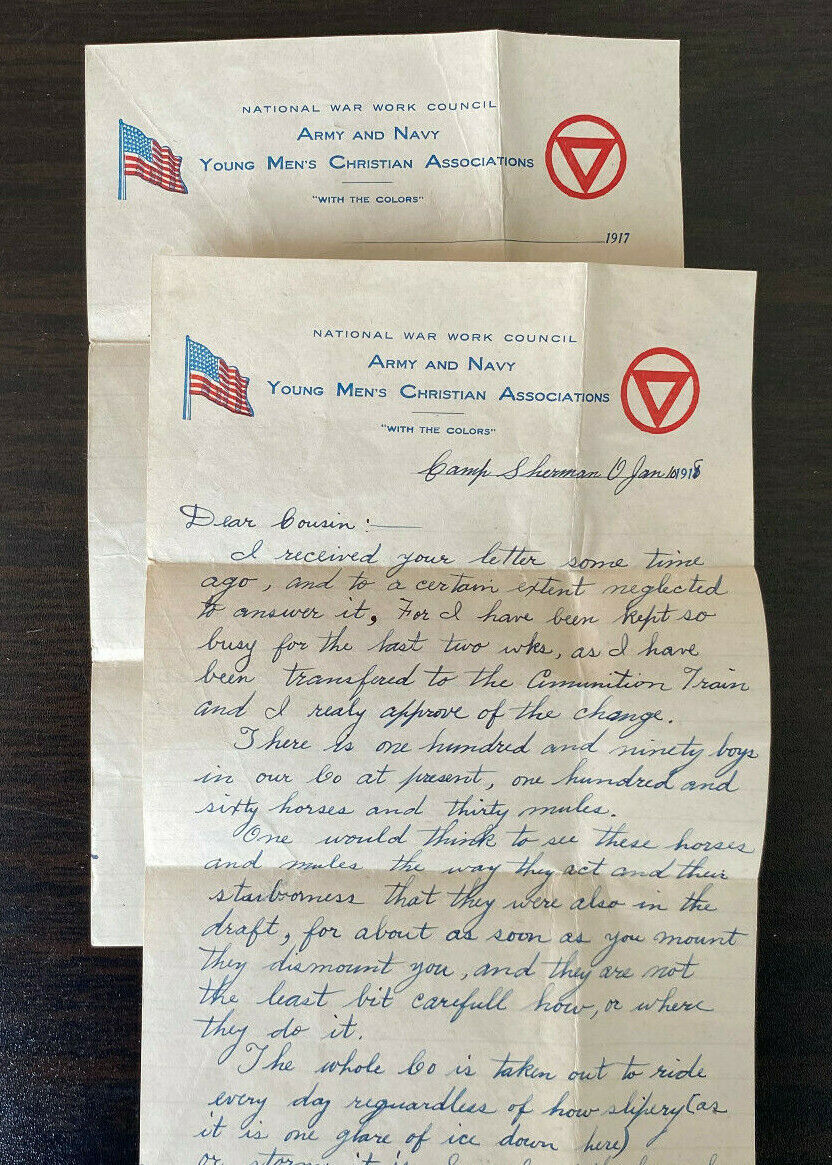 NATIONAL WAR WORK COUNCIL
ARMY AND NAVY
YOUNG MEN'S CHRISTIAN ASSOCIATIONS
"WITH THE COLORS"
1917
NATIONAL WAR WORK COUNCIL
ARMY AND NAVY
YOUNG MEN'S CHRISTIAN ASSOCIATIONS
"WITH THE COLORS"
Camp Sherman O Jan 10 1918
Dear Cousin:
I received your letter some time
ago, and to a certain extent neglected
to answer it, For I have been kept so
busy for the last two wks, as I have
been transfered to the Amunition Train
and I realy approve of the change.
There is one hundred and ninety boys
in our Co at present, one hundred and
sixty horses and thirty mules.
One would think to see these horses
and mules the way they act and their
starborness that they were also in the
draft, for about as soon as you mount
they dismount you, and they are not
the least bit carefull how, or where
they do it.
The whole Co is taken out to ride
every day reguardless of how slipery (as
it is one glare of ice down here)
or stormy it is